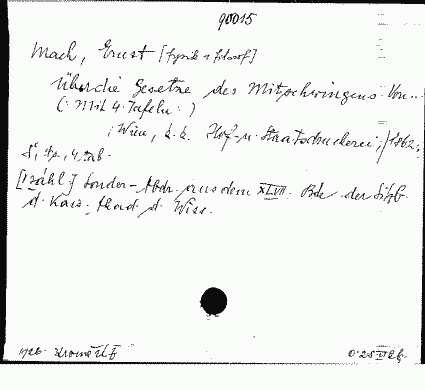 90015
Mach, Ernst [fysik a filosof]
Über die Gesetze des Mitschwingens. Von...
(: Mit 4 Tafeln :)
; Wien, k.k. Hof- u. Staatsdruckerei; 1862;
8°, 4 tab.
Sonder-Abdr. aus dem XLVII. Bde. der Sitzb.
d. Kais. Akad. d. Wiss.
1926